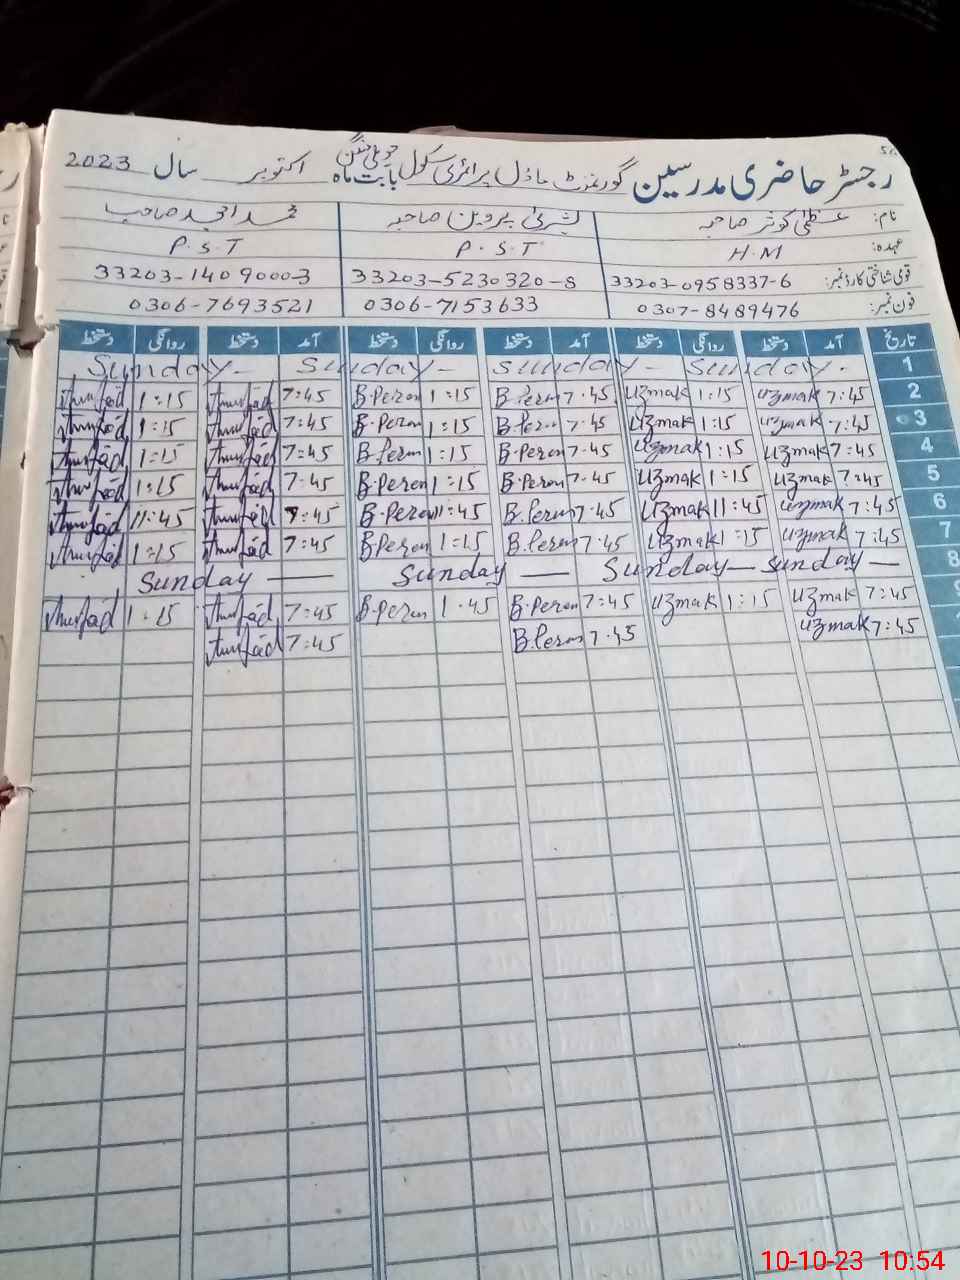 رجسٹر حاضری مدرسین گورنمنٹ ماڈل پرائمری سکول بابت ماہ اکتوبر سال 2023
نام: عظمیٰ کوثر صاحبہ بشریٰ پروین صاحبہ محمد امجد صاحب
عہدہ: H.M P.S.T P.S.T
قومی شناختی کارڈ نمبر: 33203-0958337-6 33203-5230320-8 33203-1409000-3
فون نمبر: 0307-8489476 0306-7153633 0306-7693521
تاریخ آمد دستخط روانگی دستخط آمد دستخط روانگی دستخط آمد دستخط روانگی دستخط
1 Sunday. Sunday Sunday- Sunday-
2 7:45 uzmak 1:15 uzmak 7.45 B.Peron 1:15 B.Peron 7:45 1:15
3 7:45 uzmak 1:15 uzmak 7.45 B.Peron 1:15 B.Peron 7:45 1:15
4 7:45 uzmak 1:15 uzmak 7.45 B.Peron 1:15 B.Peron 7:45 1:15
5 7:45 uzmak 1:15 uzmak 7.45 B.Peron 1:15 B.Peron 7.45 1:15
6 7:45 uzmak 11:45 uzmak 7.45 B.Peron 11:45 B.Peron 7:45 11:45
7 7:45 uzmak 1:15 uzmak 7.45 B.Peron 1:15 B.Peron 7:45 1:15
8 Sunday — Sunday — Sunday — Sunday —
9 7:45 uzmak 1:15 uzmak 7:45 B.Peron 1.45 B.Peron 7:45 1:15
7:45 uzmak 7:45 B.Peron 7:45
10-10-23 10:54